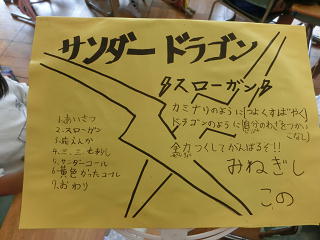 サンダードラゴン
スローガン
カミナリのように(つよくすばやく)
ドラゴンのように(自分のわざをつかいこなし)
全力つくしてがんばるぞ!!
みねぎし
この
1.あいさつ
2.スローガン
3.応えんか
4.三、三、七拍し
5.サンダーコール
6.黄色かったコール
7.おわり